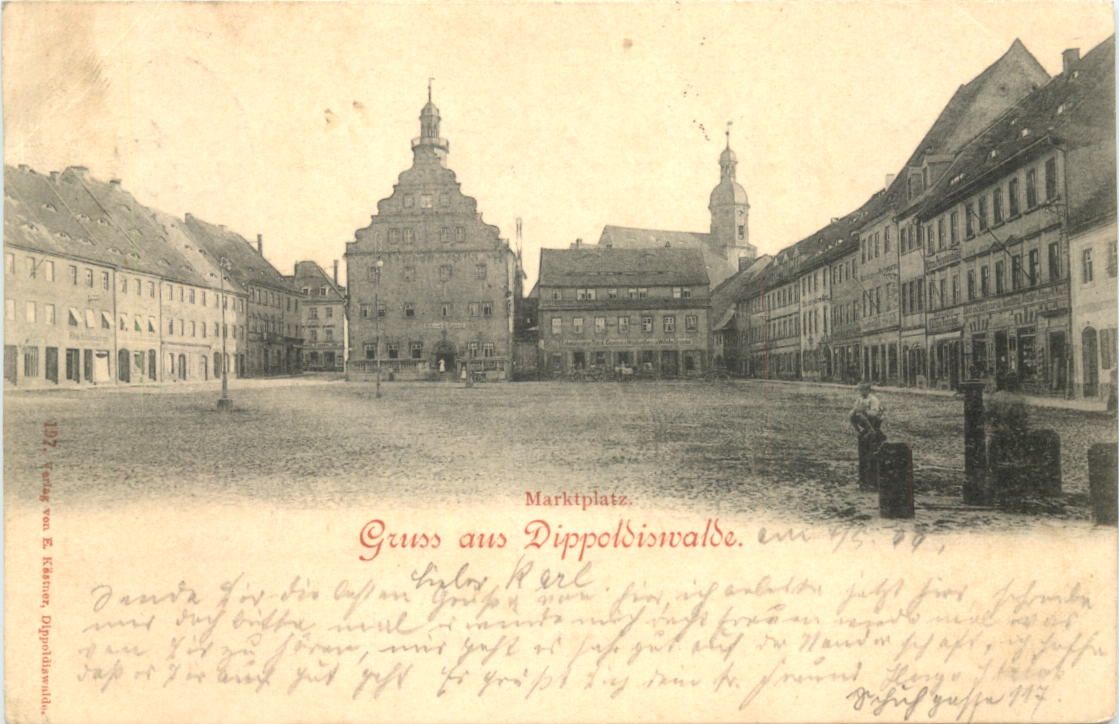 Marktplatz.
Gruss aus Dippoldiswalde.
am 4/5. 99.
Lieber Karl
Sende Dir die besten Grüße von hier, ich arbeite jetzt hier, schreibe
mir doch bitte, mal es würde mich recht freuen wieder mal was
von Dir zu hören, mir geht es sehr gut auf der Wanderschaft, ich hoffe
daß es Dir auch gut geht Es grüßt Dich dein Fr. Freund Hugo
Schuhgasse 117.
197. Verlag von E. Köstner, Dippoldiswalde.